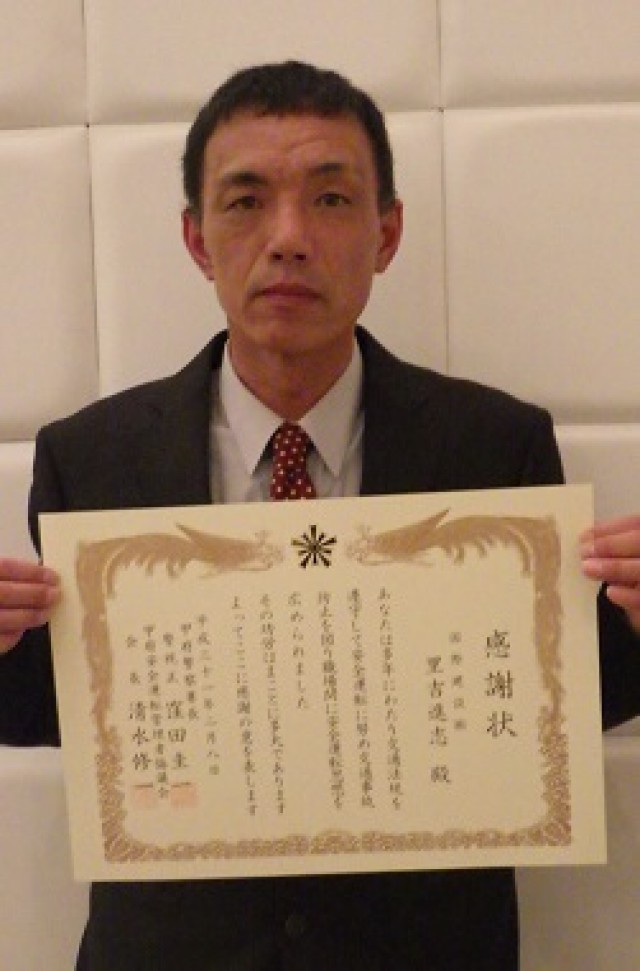 感謝状
国際建設㈱
里吉進志 殿
あなたは多年にわたり交通法規を
遵守して安全運転に努め交通事故
防止を図り職場間に安全運転思想を
広められました
その功労はまことに多大であります
よってここに感謝の意を表します
平成三十一年二月八日
甲府警察署長
警視正 窪田圭一
甲府安全運転管理者協議会
会長 清水修一